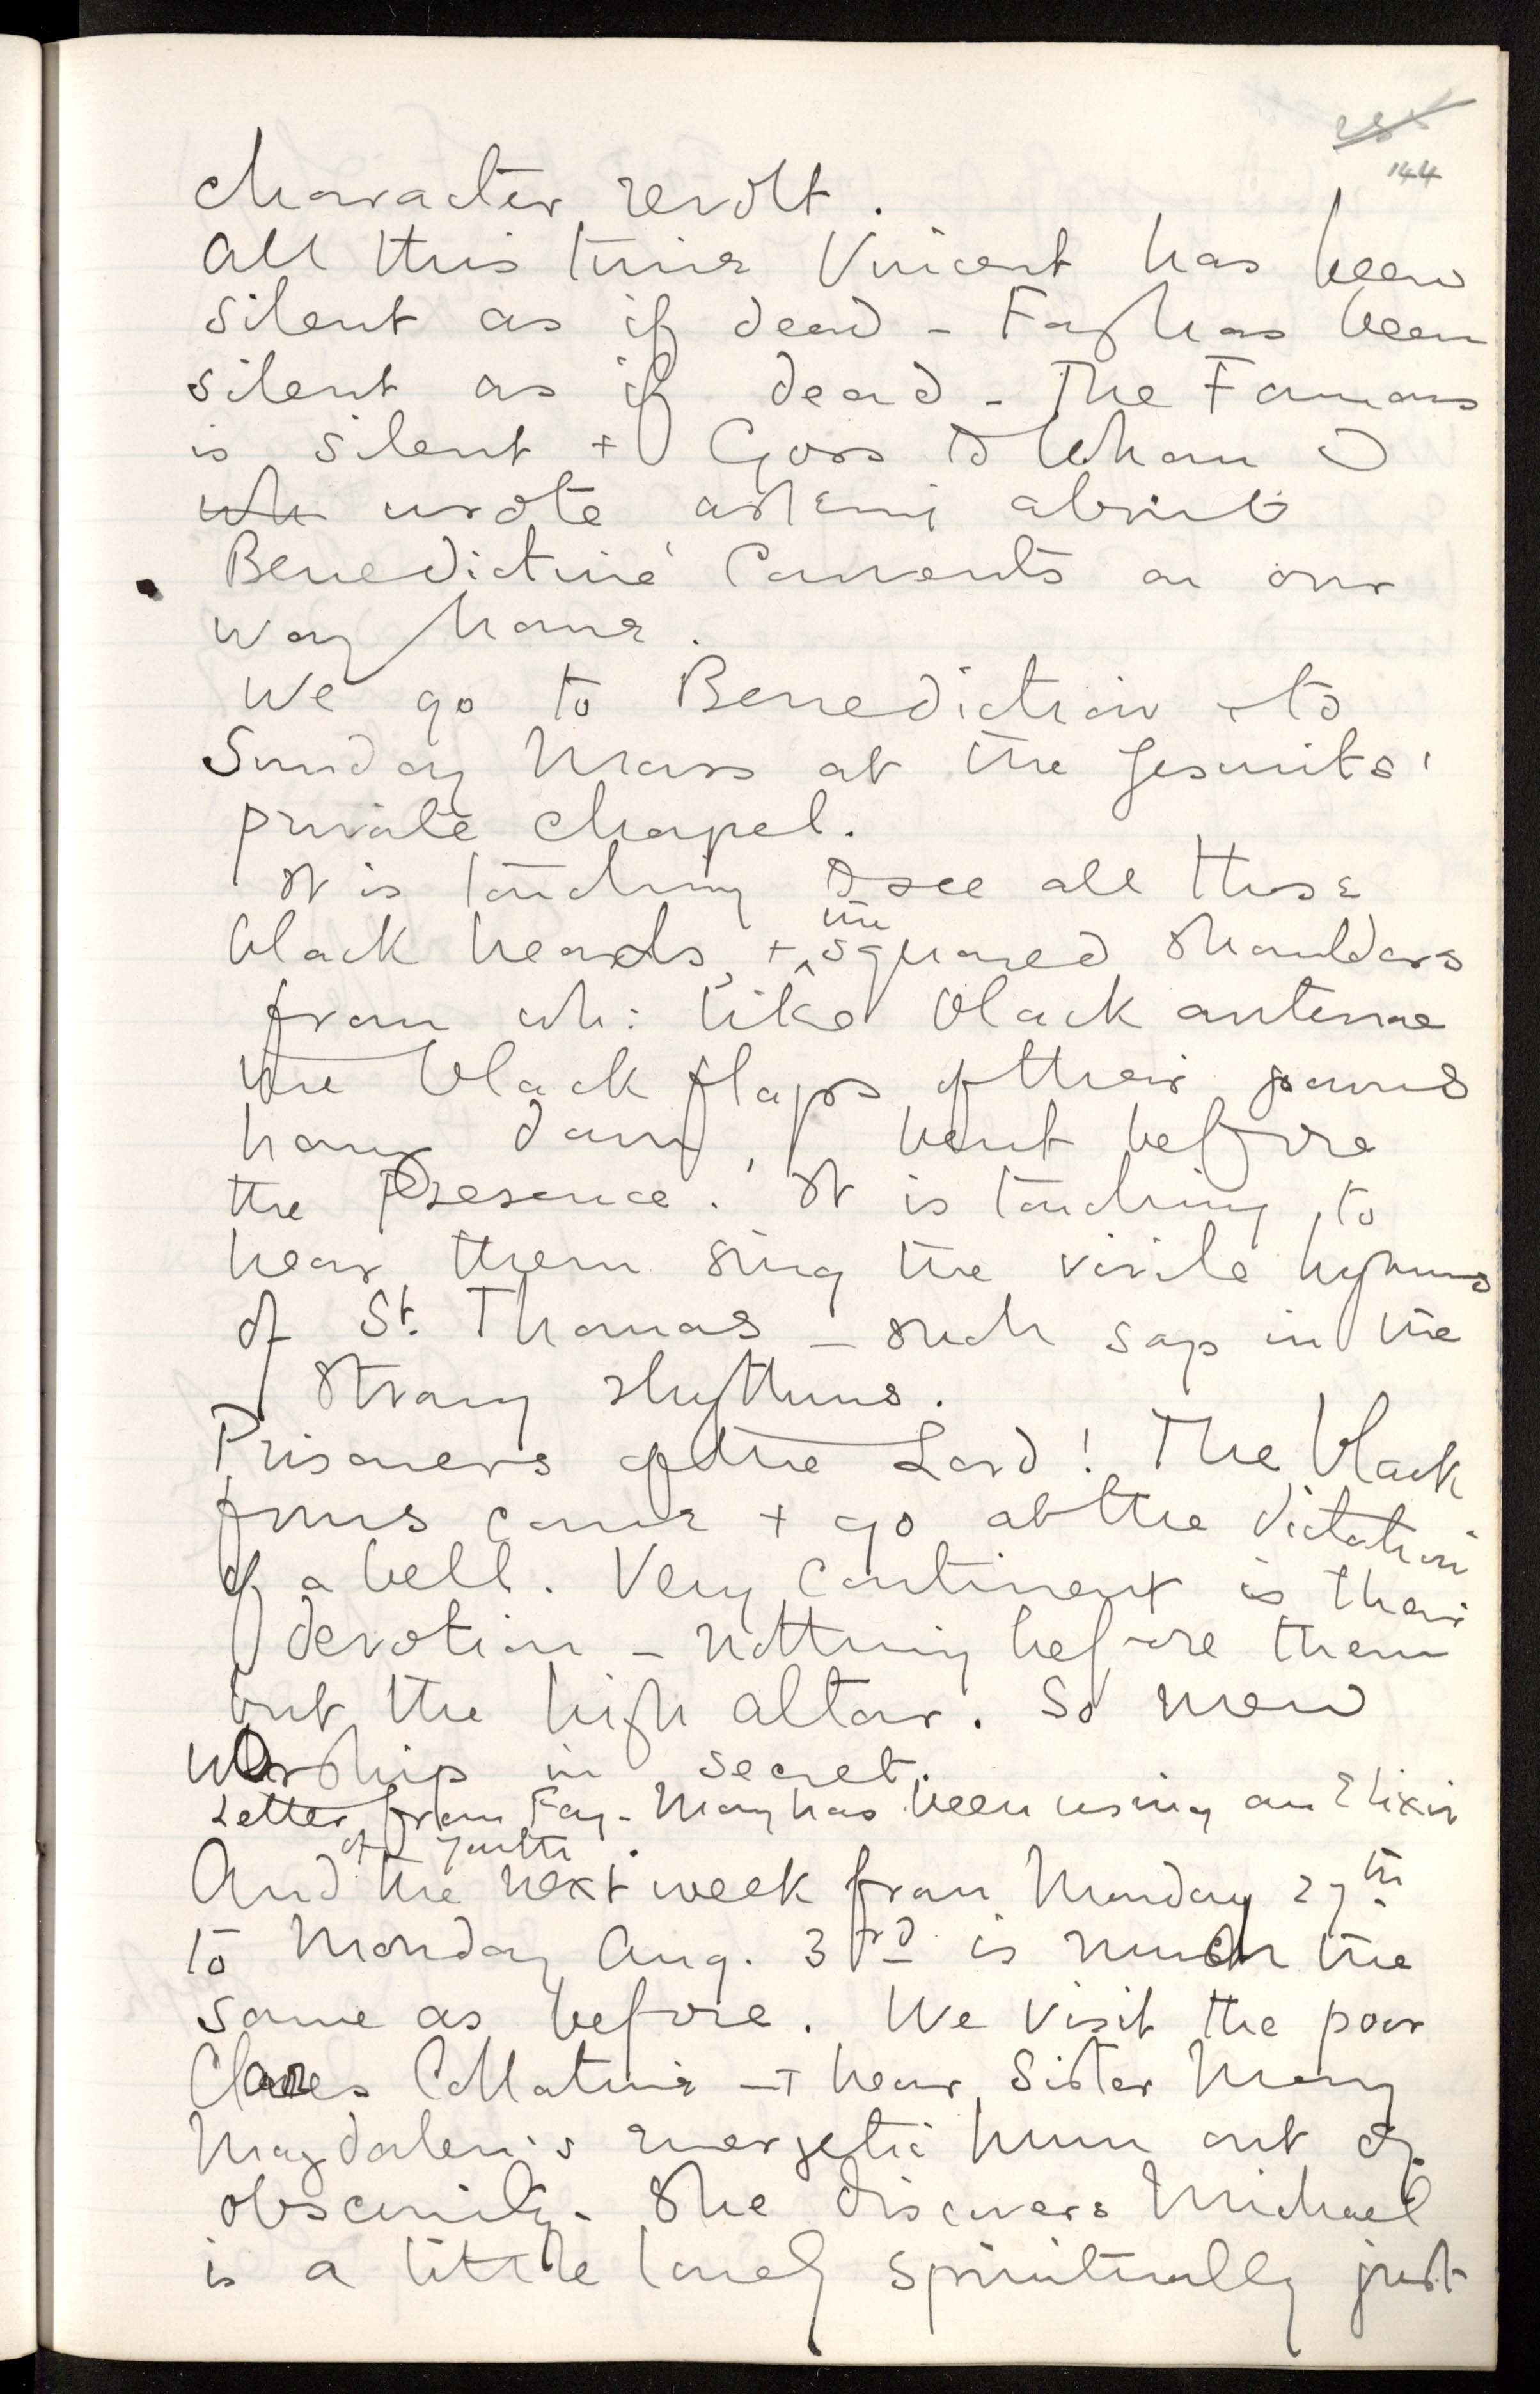 144
character revolt.
All this time Vincent has been
silent as if dead - Fay has been
silent as if dead - The Famous
is silent + Goss to whom I
wh wrote asking about
Benedictine Convents on our
way home.
We go to Benediction + to
Sunday Mass at the Jesuits'
private chapel.
It is touching to see all these
black heads, + the squared shoulders
from wh: like black antennae
the black flaps of their gowns
hang down, bent before
the Presence. It is touching to
hear them sing the virile hymns
of St. Thomas - such sap in the
strong rhythms.
Prisoners of the Lord! The black
forms come + go at the dictation
of a bell. Very continent is their
devotion - nothing before them
but the high altar. So men
worship in secret.
Letter from Fay - May has been using an Elixir
of Youth.
And the next week from Monday 27th
to Monday Aug. 3rd is much the
same as before. We visit the poor
Clares Collatine - + hear Sister Mary
Magdalen's energetic hum out of
obscurity - She discovers Michael
is a little lonely spiritually just